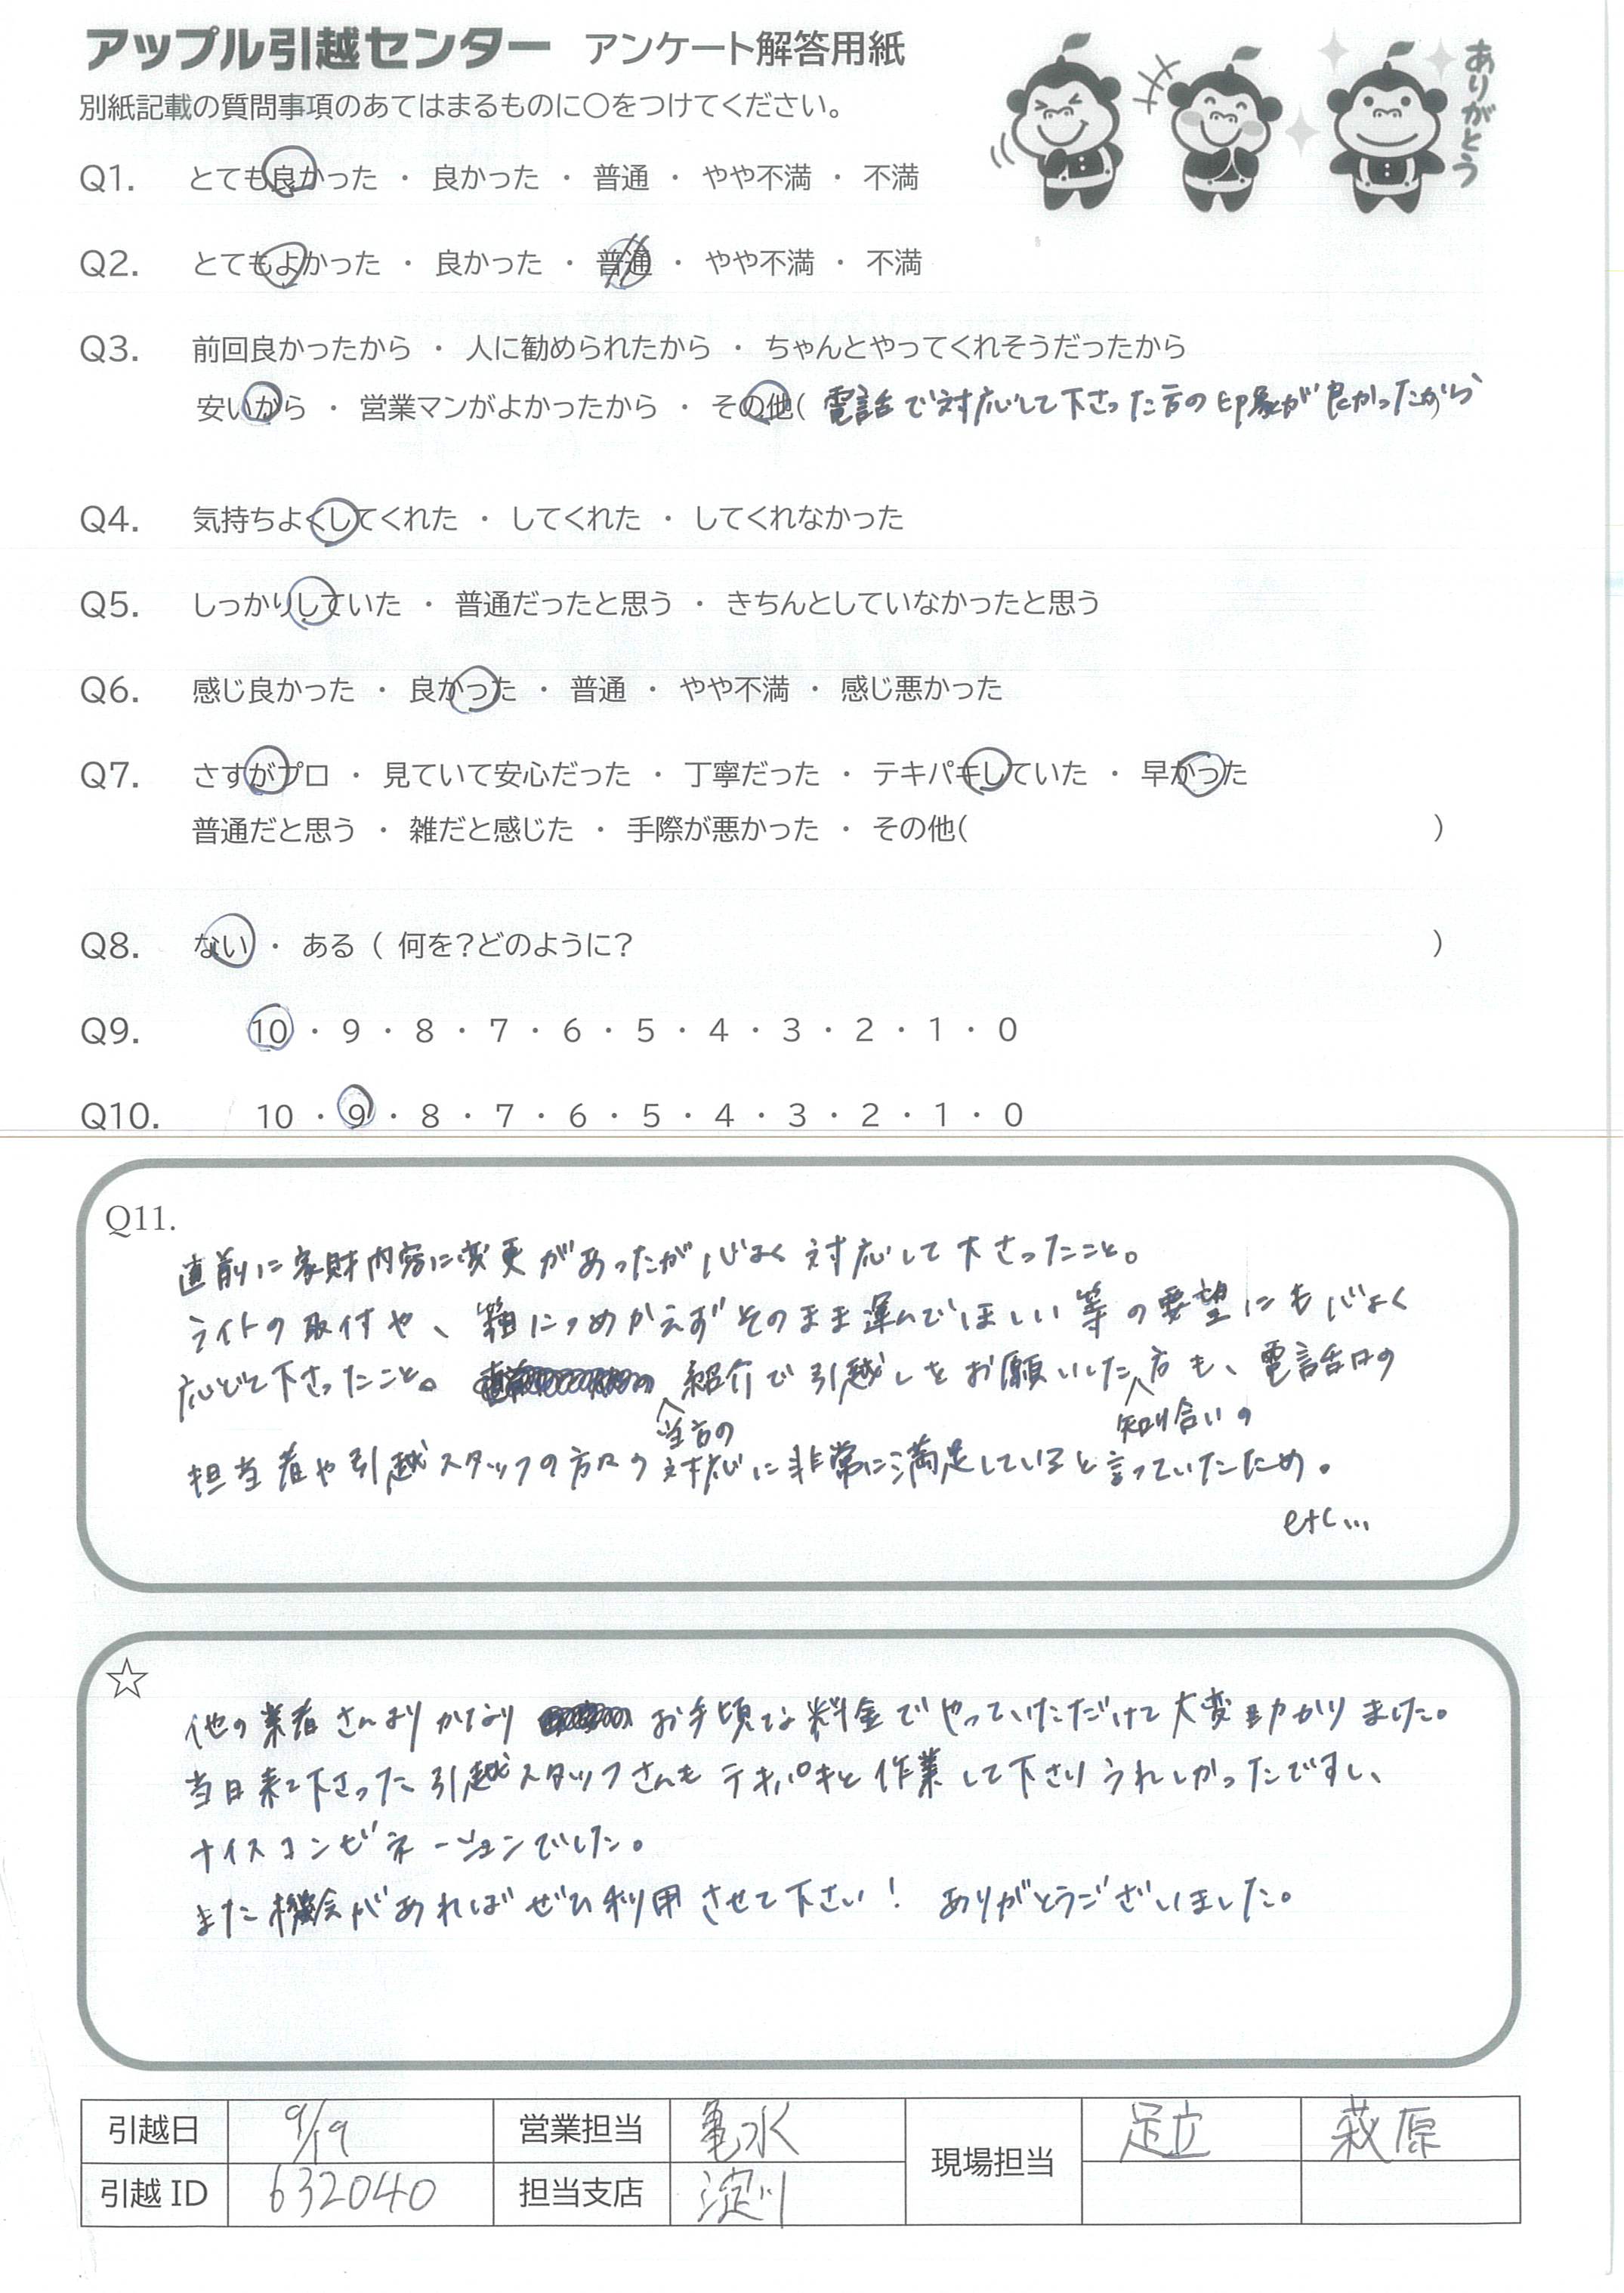 アップル引越センター アンケート解答用紙
別紙記載の質問事項のあてはまるものに○をつけてください。
ありがとう
Q1. とても良かった ・ 良かった ・ 普通 ・ やや不満 ・ 不満
Q2. とてもよかった ・ 良かった ・ 普通 ・ やや不満 ・ 不満
Q3. 前回良かったから ・ 人に勧められたから ・ ちゃんとやってくれそうだったから
安いから ・ 営業マンがよかったから ・ その他( 電話で対応して下さった方の印象が良かったから )
Q4. 気持ちよくしてくれた ・ してくれた ・ してくれなかった
Q5. しっかりしていた ・ 普通だったと思う ・ きちんとしていなかったと思う
Q6. 感じ良かった ・ 良かった ・ 普通 ・ やや不満 ・ 感じ悪かった
Q7. さすがプロ ・ 見ていて安心だった ・ 丁寧だった ・ テキパキしていた ・ 早かった
普通だと思う ・ 雑だと感じた ・ 手際が悪かった ・ その他( )
Q8. ない ・ ある ( 何を?どのように? )
Q9. 10 ・ 9 ・ 8 ・ 7 ・ 6 ・ 5 ・ 4 ・ 3 ・ 2 ・ 1 ・ 0
Q10. 10 ・ 9 ・ 8 ・ 7 ・ 6 ・ 5 ・ 4 ・ 3 ・ 2 ・ 1 ・ 0
Q11.
直前に家財内容に変更があったが心よく対応して下さったこと。
ライトの取付や、箱につめかえずそのまま運んでほしい等の要望にも心よく
応じて下さったこと。 紹介で引越しをお願いした方も、電話口の
当方の 知り合いの
担当者や引越スタッフの方々の対応に非常に満足していると言っていたため。
etc...
☆
他の業者さんよりかなり お手頃な料金でやっていただけて大変助かりました。
当日来て下さった引越スタッフさんもテキパキと作業して下さりうれしかったですし、
ナイスコンビネーションでした。
また機会があればぜひ利用させて下さい! ありがとうございました。
引越日 9/19 営業担当 亀水 現場担当 足立 萩原
引越ID 632040 担当支店 淀川